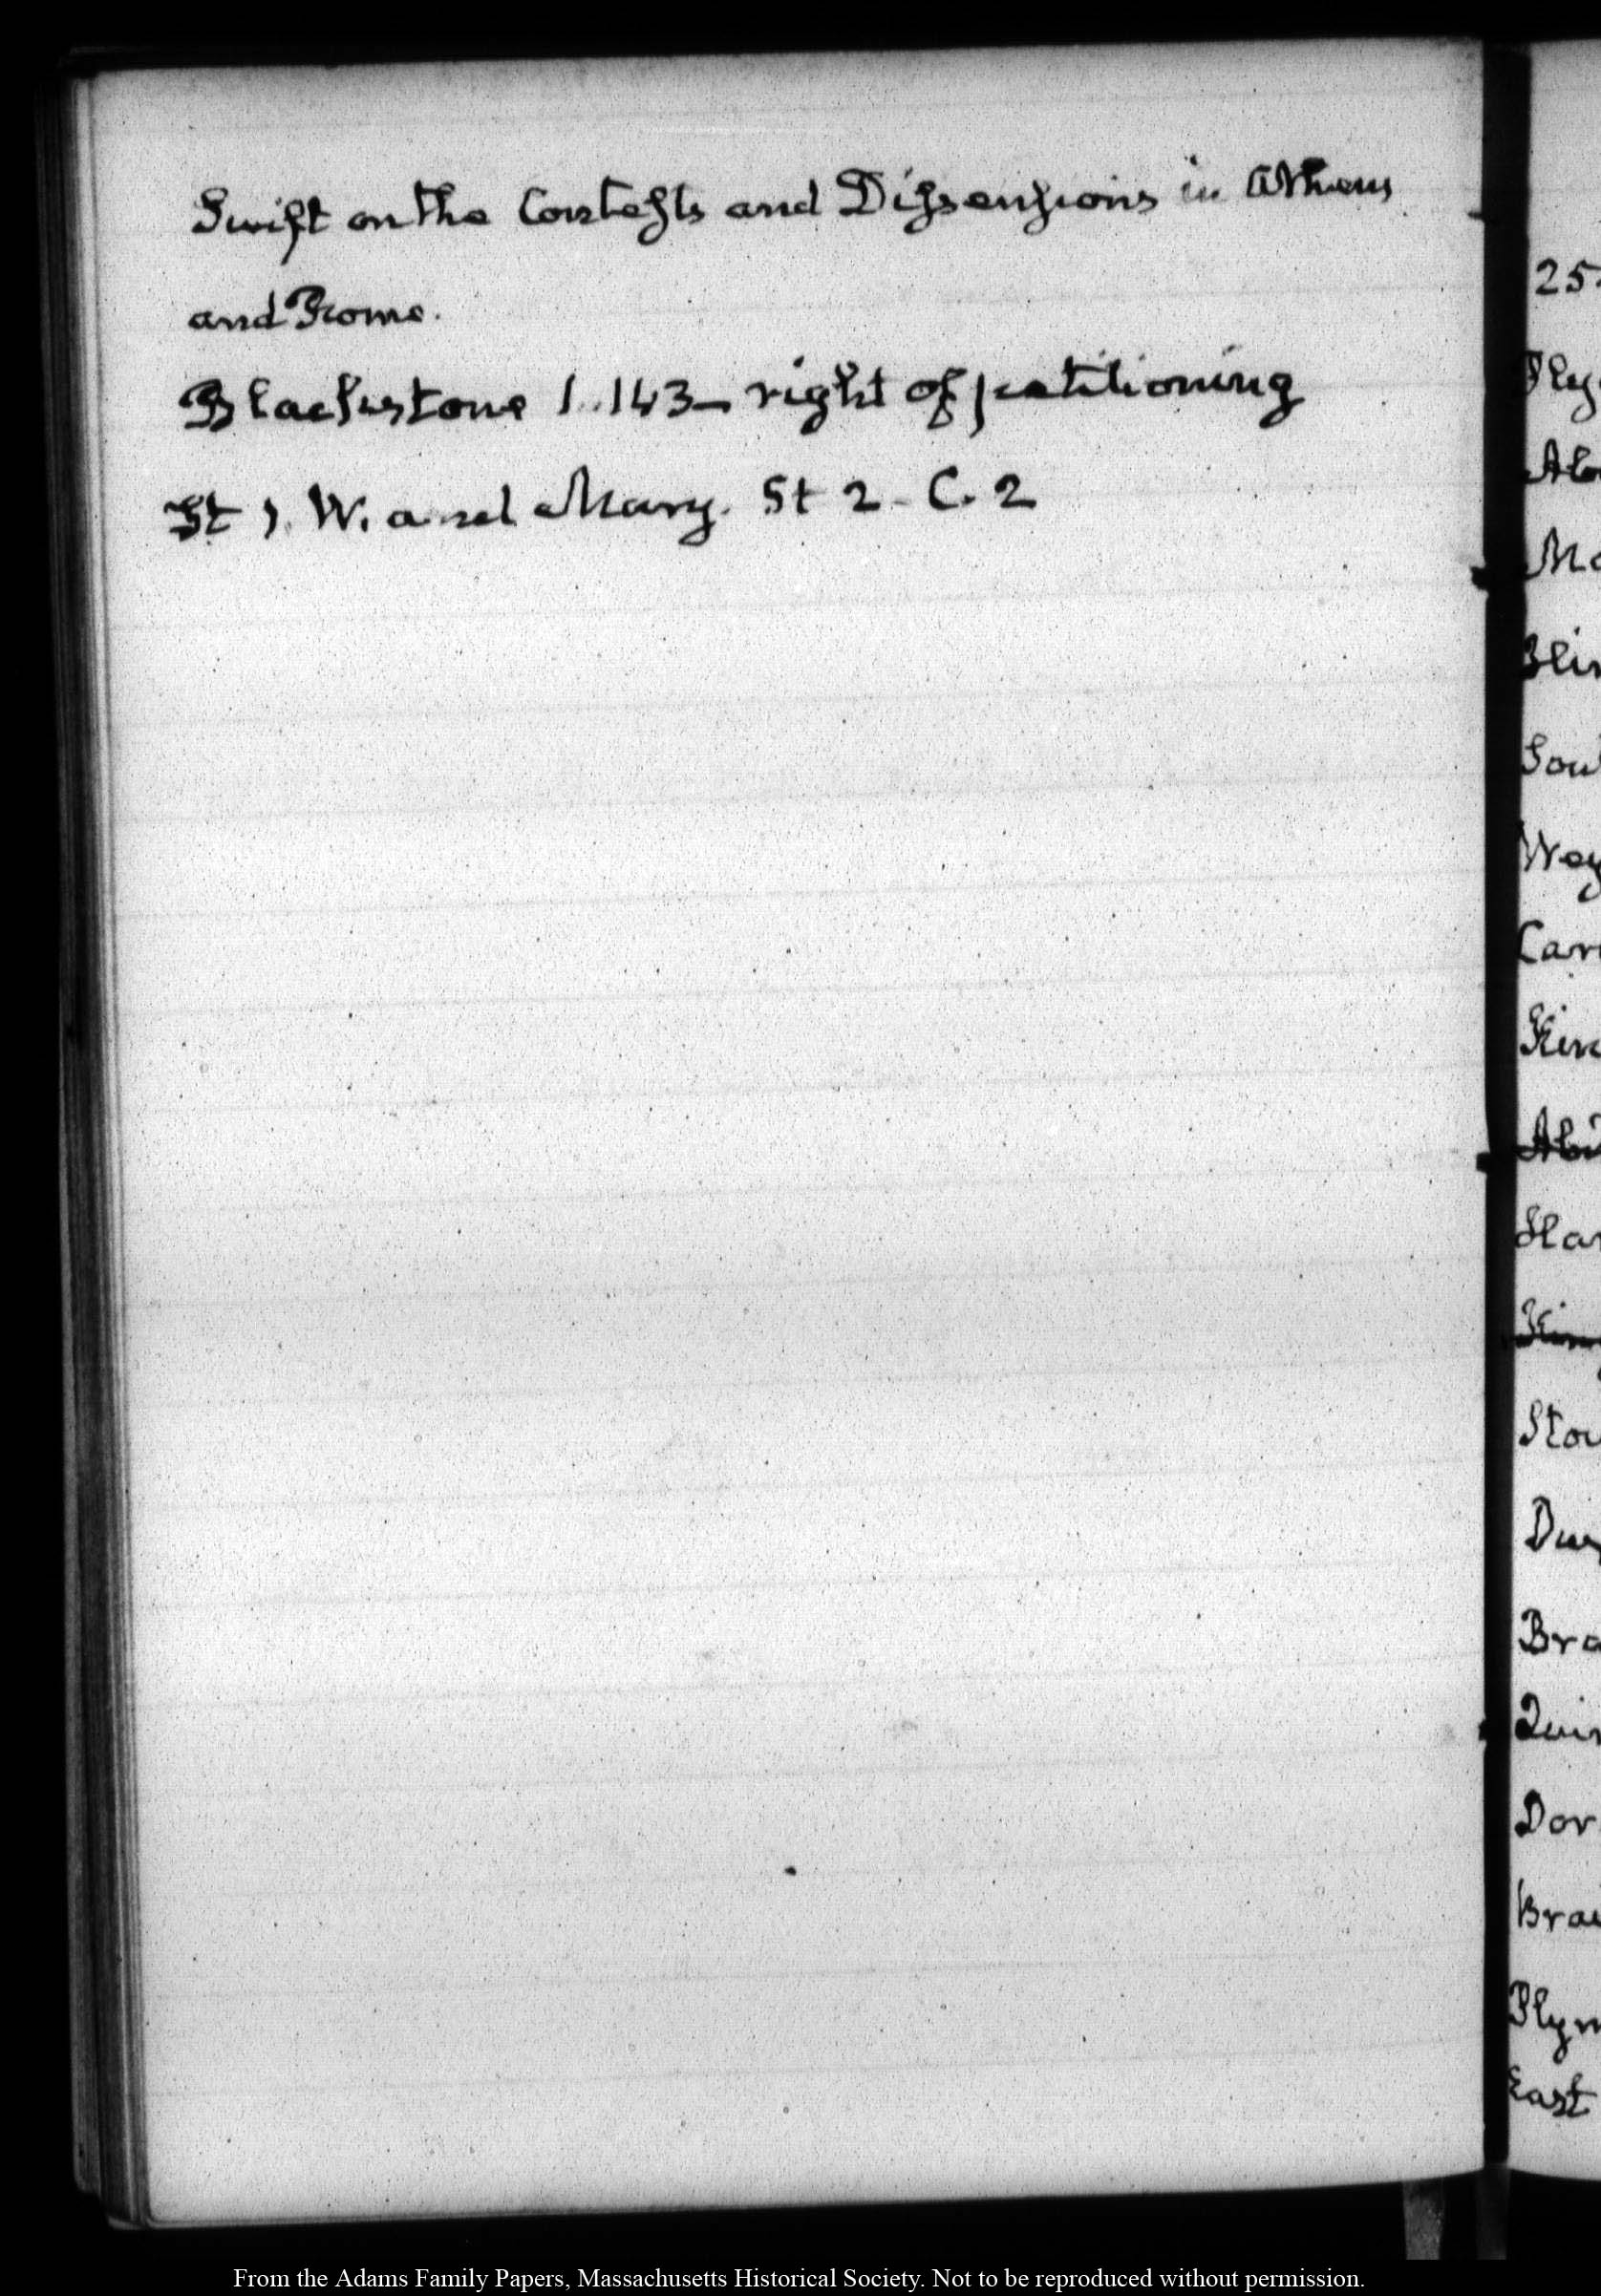 Swift on the Contests and Dissensions in Athens
and Rome.
Blackstone 1. 143 — right of petitioning
St 1. W. and Mary. St 2 - C. 2
25
Ply
Ab
Mo
Blin
Sou
Wey
Car
Kin
Abi
Han
Kin
Stou
Dux
Bra
Quin
Dor
Brai
Plym
East
From the Adams Family Papers, Massachusetts Historical Society. Not to be reproduced without permission.